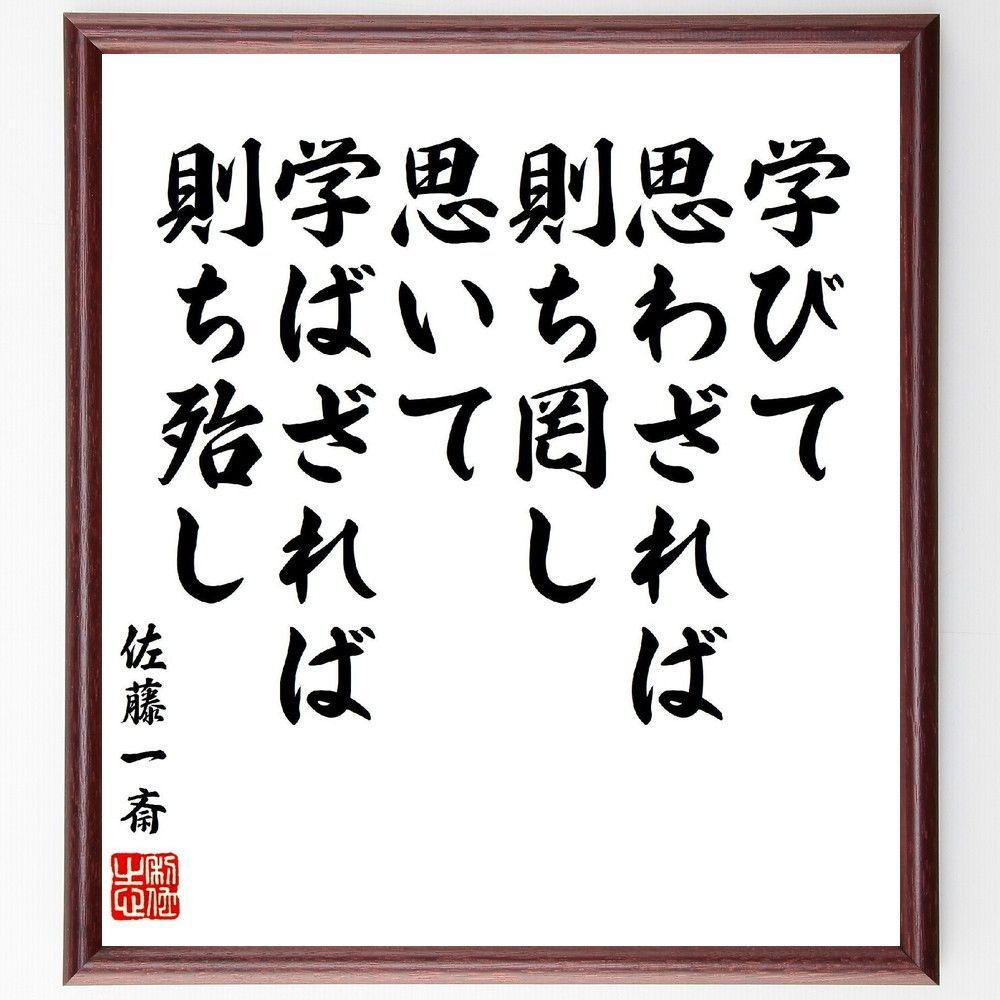 学びて
思わざれば
則ち罔し
思いて
学ばざれば
則ち殆し
佐藤一斎